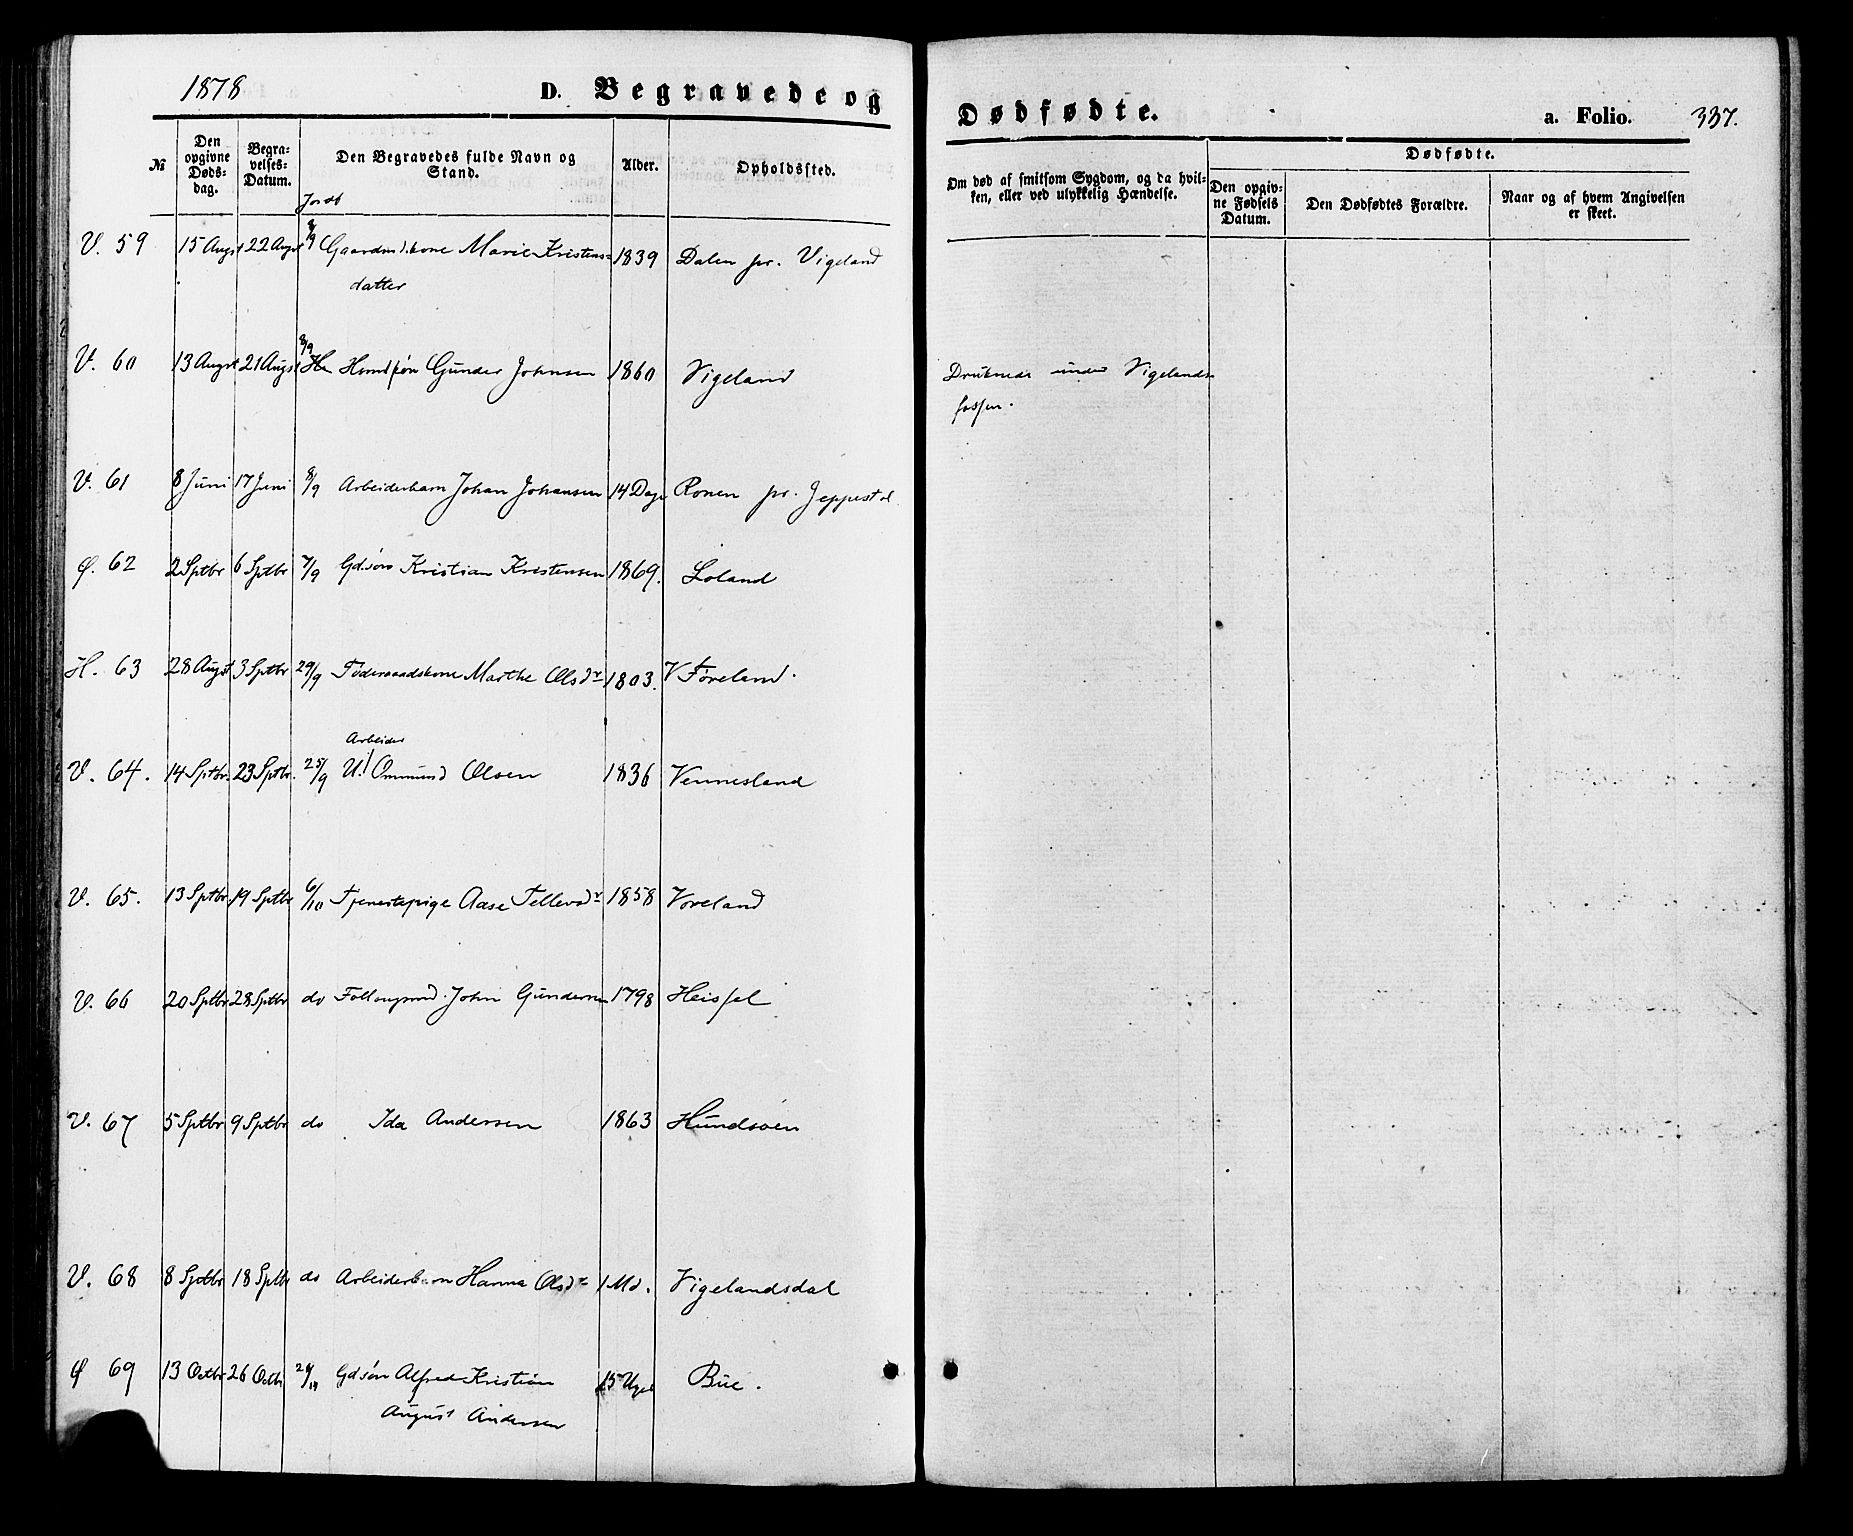 1878
D. Begravede og
Dødfødte.
a. Folio. 337.
№
Den opgivne Døds-dag.
Begra-velses-Datum.
Den Begravedes fulde Navn og Stand.
Alder.
Opholdssted.
Om død af smitsom Sygdom, og da hvil-
ken, eller ved ulykkelig Hændelse.
Dødfødte.
Den opgiv-ne Fødsels Datum.
Den Dødfødtes Forældre.
Naar og af hvem Angivelsen er skeet.
Jordf
V. 59 15 Augst 22 Augst 8/9 Gaardmdskone Marie Kristens= 1839 Dalen pr. Vigeland
datter
V. 60 13 Augst 21 Augst 8/9 Gunder Johnsen 1860 Vigeland Druknede under Vigelands=
fossen.
V. 61 8 Juni 17 Juni 8/9 Arbeiderbarn Johan Johansen 14 Dage Ronen pr. Jeppestøl
Ø. 62 2 Sptbr 6 Sptbr 7/9 Gdsøn Kristian Kristensen 1869. Loland
H. 63 28 Augst 3 Sptbr 29/9 Føderaadskone Marthe Olsdr 1803. V Føreland.
Arbeider
V. 64. 14 Sptbr. 23 Sptbr. 25/9 U. Ommund Olsen 1836 Vennesland
V. 65. 13 Sptbr. 19 Sptbr 6/10 Tjenestepige Aase Tellevsdr 1858 Voreland
V. 66 20 Sptbr 28 Sptbr do John Gundersen 1798 Heissel
V. 67 5 Sptbr 9 Sptbr do Ida Andersen 1863 Hundsøen
V. 68 8 Sptbr 18 Sptbr do Arbeiderbarn Hanna Olsdr 1 Md. Vigelandsdal
Ø 69 13 Octbr 26 Octbr Gdsøn Alfred Kristian 15 Uger Bue.
August Andersen